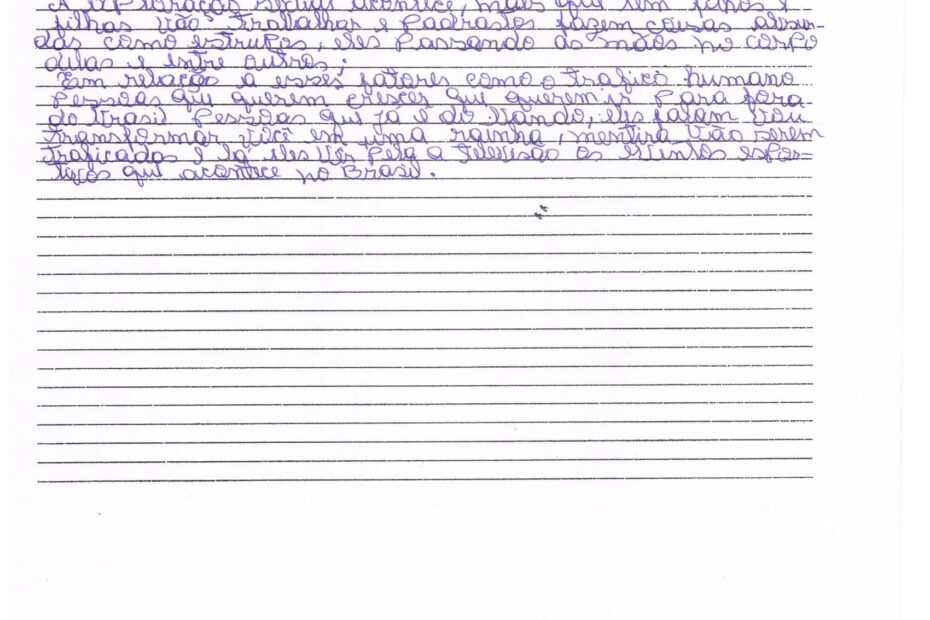 A exploração sexual acontece, mães que tem filhos e
filhas vão trabalhar e padrastos fazem coisas absur-
das como estrupos, eles passando as mãos no corpo
delas e entre outros.
Em relação a esses fatores como o trafico humano
pessoas que querem crescer que querem ir para fora
do Brasil pessoas que já é do bando, eles falam vou
transformar você em uma rainha, mentira vão serem
traficadas e lá eles vês pela a televisão os
que acontece no Brasil.